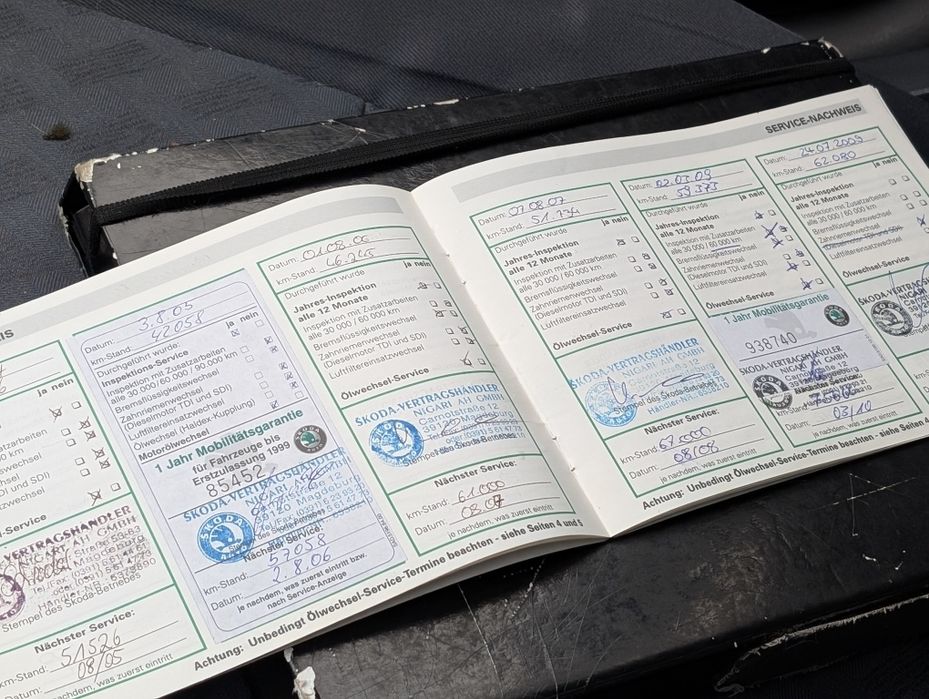 IS
ja nein
zarbeiten
wechsel
el
DI und SDI)
wechsel
l-Service
Stempel des Skoda-Betriebes
Nächster Service:
km-Stand: 51526
Datum: 08/05
je nachdem, was zuerst eintritt
Datum: 3.8.05
km-Stand: 42058
Durchgeführt wurde: ja nein
Inspektions-Service
Inspektion mit Zusatzarbeiten
alle 30 000/60 000/90 000 km
Bremsflüssigkeitswechsel
Zahnriemenwechsel
(Dieselmotor TDI und SDI)
Luftfiltereinsatzwechsel
Ölwechsel (Haldex-Kupplung)
Motorölwechsel
1 Jahr Mobilitätsgarantie
für Fahrzeuge bis
Erstzulassung 1999
85452
SKODA-VERTRAGSHÄNDLER
Nächster Service:
km-Stand: 57058
Datum: 2.8.06
je nachdem, was zuerst eintritt bzw.
nach Service-Anzeige
Datum: 01.08.06
km-Stand: 46.245
Durchgeführt wurde ja nein
Jahres-Inspektion
alle 12 Monate
Inspektion mit Zusatzarbeiten
alle 30 000 / 60 000 km
Bremsflüssigkeitswechsel
Zahnriemenwechsel
(Dieselmotor TDI und SDI)
Luftfiltereinsatzwechsel
Ölwechsel-Service
SKODA-VERTRAGSHÄNDLER
NIGARI AH GMBH
Stempel des Skoda-Betriebes
Nächster Service:
km-Stand: 61.000
Datum: 08.07
je nachdem, was zuerst eintritt
Achtung: Unbedingt Ölwechsel-Service-Termine beachten - siehe Seiten 4 und 5
SERVICE-NACHWEIS
Datum: 07.08.07
km-Stand: 51.734
Durchgeführt wurde ja nein
Jahres-Inspektion
alle 12 Monate
Inspektion mit Zusatzarbeiten
alle 30 000 / 60 000 km
Bremsflüssigkeitswechsel
Zahnriemenwechsel
(Dieselmotor TDI und SDI)
Luftfiltereinsatzwechsel
Ölwechsel-Service
SKODA-VERTRAGSHÄNDLER
NIGARI AH GMBH
Stempel des Skoda-Betriebes
Nächster Service:
km-Stand: 67.000
Datum: 08/08
je nachdem, was zuerst eintritt
Datum: 02.03.09
km-Stand: 59.373
Durchgeführt wurde ja nein
Jahres-Inspektion
alle 12 Monate
Inspektion mit Zusatzarbeiten
alle 30 000 / 60 000 km
Bremsflüssigkeitswechsel
Zahnriemenwechsel
(Dieselmotor TDI und SDI)
Luftfiltereinsatzwechsel
Ölwechsel-Service
1 Jahr Mobilitätsgarantie
938740
SKODA-VERTRAGSHÄNDLER
NIGARI AH GMBH
Nächster Service:
km-Stand:
Datum: 03/10
je nachdem, was zuerst eintritt
Datum: 24.07.2009
km-Stand: 62.080
Durchgeführt wurde ja nein
Jahres-Inspektion
alle 12 Monate
Inspektion mit Zusatzarbeiten
alle 30 000 / 60 000 km
Bremsflüssigkeitswechsel
Zahnriemenwechsel
(Dieselmotor TDI und SDI)
Luftfiltereinsatzwechsel
Ölwechsel-Service
SKODA-VERTR
NIGARI
Achtung: Unbedingt Ölwechsel-Service-Termine beachten - siehe Seiten